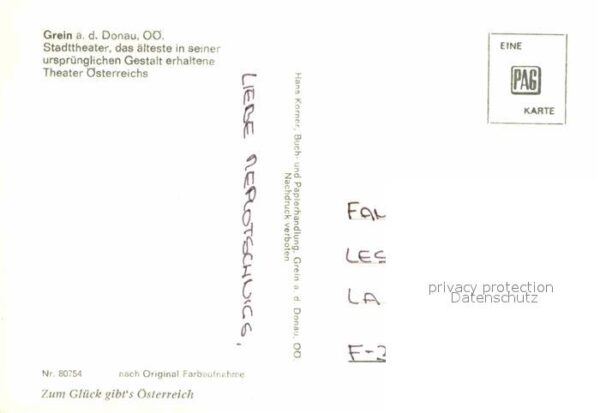 Grein a. d. Donau, OÖ.
Stadttheater, das älteste in seiner
ursprünglichen Gestalt erhaltene
Theater Österreichs
LIEBE
Hans Körner, Buch- und Papierhandlung, Grein a. d. Donau, OÖ.
Nachdruck verboten
EINE
PAG
KARTE
LES
LA
privacy protection
Datenschutz
Nr. 80754 nach Original Farbaufnahme
Zum Glück gibt's Österreich